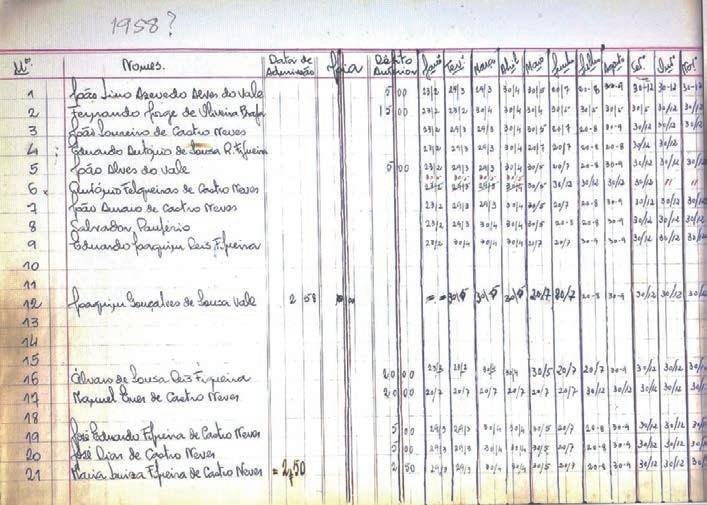 1958?
Nº. Nomes. Data de Admissão Joia Débito Anterior Janº Fevº Março Abril Maio Junho Julho Agosto Set. Outº Novº
1 João Lino Azevedo Alves do Vale 5 00 23/2 29/3 29/3 30/4 30/5 20/7 20-8 30-9 30-12 30-12
2 Fernando Jorge de Oliveira 15 00 23/2 30/4 30/4
3 João Loureiro de Castro Neves 23/2 29/3 29/3 30/4 20-8 30-9 30/12 30/12 30/12
4 Eduardo António de Sousa R. Figueira 23/2 29/3 29/3 30/4 20-8 30/12
5 João Alves do Vale 5 00 23/2 29/3 29/3 30/4 20/7 20-8 30-9 30/12 30/12 30/12
6 António Felgueiras de Castro Neves 30/12 30/12 " "
7 João Amaro de Castro Neves 23/2 29/3 29/3 30/4 30/5 20/7 20-8 30-9 30/12 30/12 30/12
8 Salvador 23/2 29/3 29/3 30/4 30/5 20-8 20-8 30-9 30/12 30/12 30/12
9 Eduardo Joaquim Reis Figueira 23/2 30/4 30/4 30/4 20/7 20/7 30-9 30-9 30/12 30/12 30/12
10
11
12 Joaquim Gonçalves de Sousa Vale 2 58 = = 30/5 30/5 30/5 20/7 20/7 20-8 30-9 30/12 30/12 30/12
13
14
15
16 Álvaro de Sousa Reis Figueira 20 00 30/4 30/5 20/7 20/7 30-9 30/12 30/12
17 Manuel de Castro Neves 20 00 20/7 20/7 20/7 20/7 20/7 20/7 20/7 30-9 30/12 30/12
18
19 José Eduardo Figueira de Castro Neves 5 00 29/3 29/3 30/4 30/4 30/5 20/7 20-8 30-9 30/12 30/12
20 José Dias de Castro Neves 5 00 29/3 29/3 30/4 30/4 30/5 20/7 20-8 30-9 30/12 30/12
21 Maria Luiza Figueira de Castro Neves = 2$50 2 50 29/3 29/3 30/4 30/4 30/5 20/7 20-8 30-9 30/12 30/12